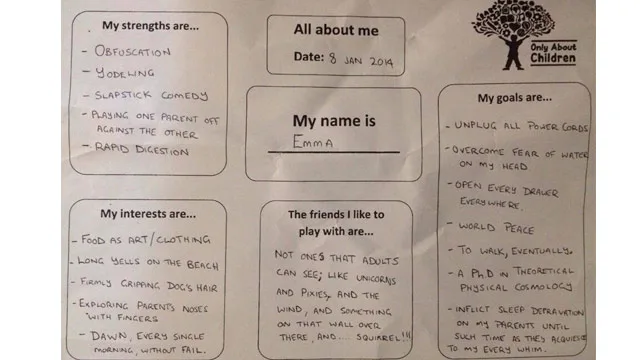 My strengths are...
- OBFUSCATION
- YODELING
- SLAPSTICK COMEDY
- PLAYING ONE PARENT OFF
AGAINST THE OTHER
- RAPID DIGESTION
All about me
Date: 8 JAN 2014
Only About
Children
My name is
EMMA
My goals are...
- UNPLUG ALL POWER CORDS
- OVERCOME FEAR OF WATER
ON MY HEAD
- OPEN EVERY DRAWER
EVERYWHERE.
- WORLD PEACE
- TO WALK, EVENTUALLY.
- A Ph.D IN THEORETICAL
PHYSICAL COSMOLOGY
- INFLICT SLEEP DEPRAVATION
ON MY PARENTS UNTIL
SUCH TIME AS THEY ACQUIESE
TO MY EVERY WHIM.
My interests are...
- FOOD AS ART/CLOTHING
- LONG YELLS ON THE BEACH
- FIRMLY GRIPPING DOG'S HAIR
- EXPLORING PARENTS NOSES
WITH FINGERS
- DAWN, EVERY SINGLE
MORNING, WITHOUT FAIL.
The friends I like to
play with are...
NOT ONES THAT ADULTS
CAN SEE; LIKE UNICORNS
AND PIXIES, AND THE
WIND, AND SOMETHING
ON THAT WALL OVER
THERE, AND.... SQUIRREL!!!